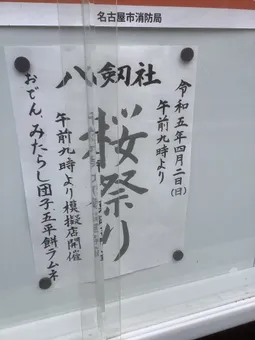 名古屋市消防局
令和五年四月二日(日)
午前九時より
桜祭り
八剱社
午前九時より模擬店開催
おでん、みたらし団子五平餅ラムネ